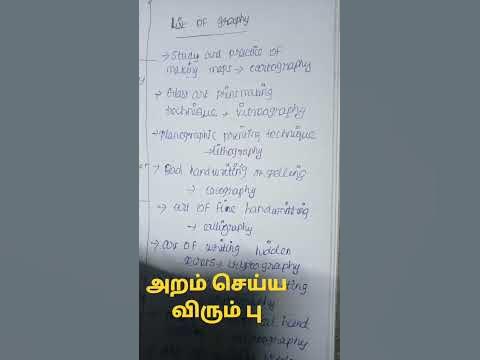 List OF graphy
→ Study and practice of
making maps → cartography
→ Glass art printmaking
technique → vitreography
→ Planographic printing technique
→ lithography
→ Bad handwriting or spelling
→ cacography
→ art of fine handwriting
→ calligraphy
→ art of writing hidden
அறம் செய்ய
விரும் பு
hand